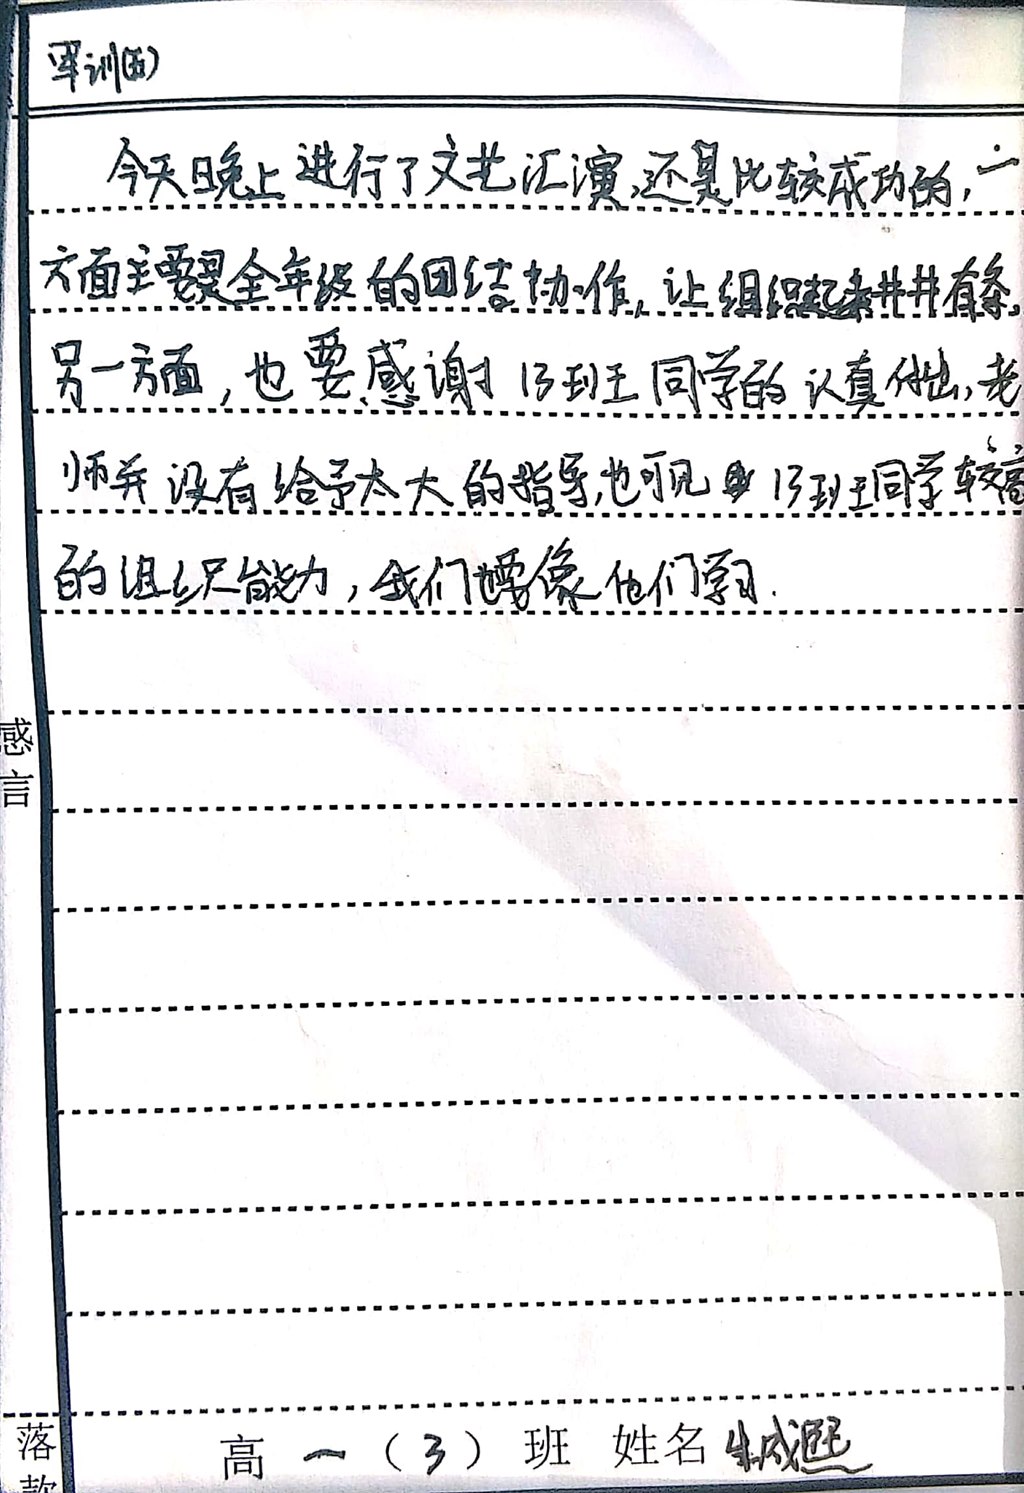 军训(五)
今天晚上进行了文艺汇演,还是比较成功的,一
方面主要是全年级的团结协作,让组织起来井井有条。
另一方面,也要感谢13班王同学的认真付出,老
师并没有给予太大的指导,也可见13班王同学较高
的组织能力,我们也要像他们学习.
感言
落款
高一(3)班 姓名